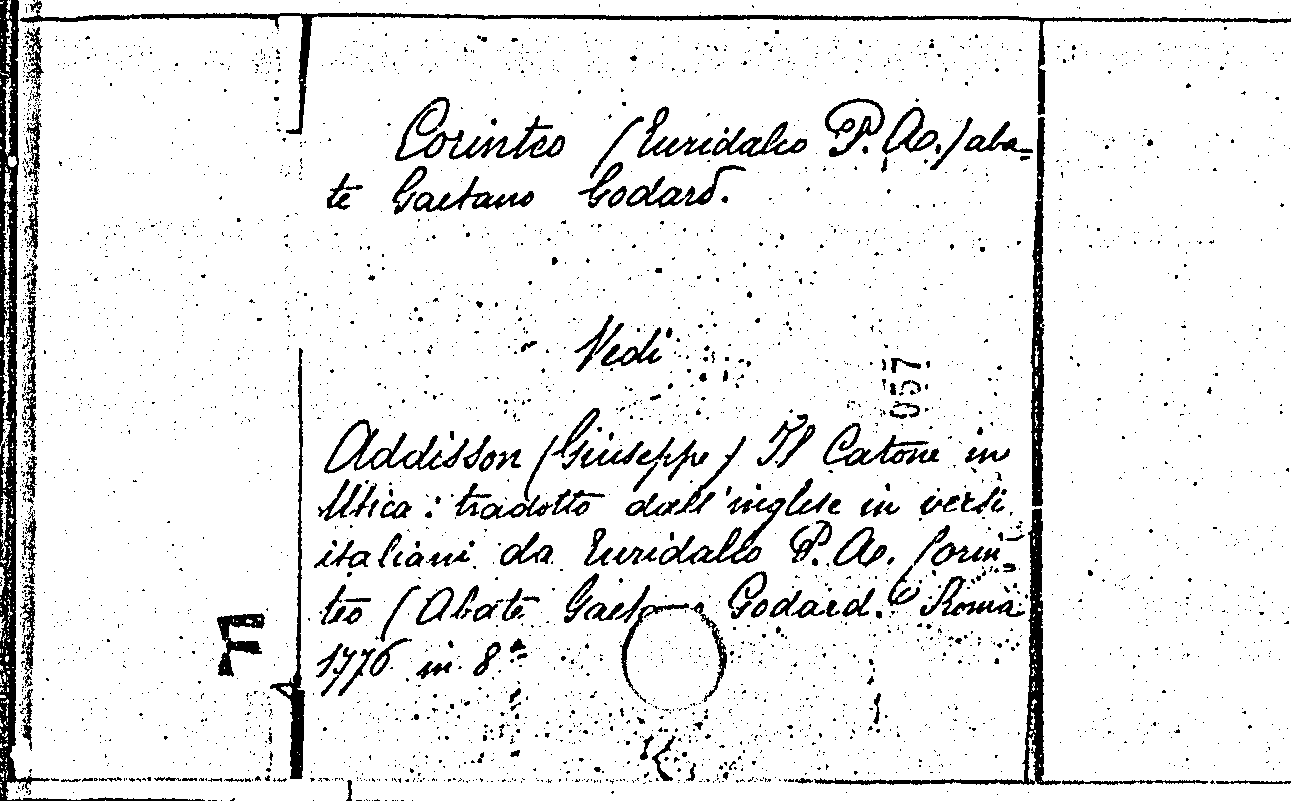 Corinteo (Euridalco P. A.) aba=
te Gaetano Godard.
Vedi
057
Addisson (Giuseppe) Il Catone in
Utica: tradotto dall'inglese in versi
italiani da Euridalco P. A. Corin=
teo (Abate Gaetano Godard. Roma
1776 in 8°